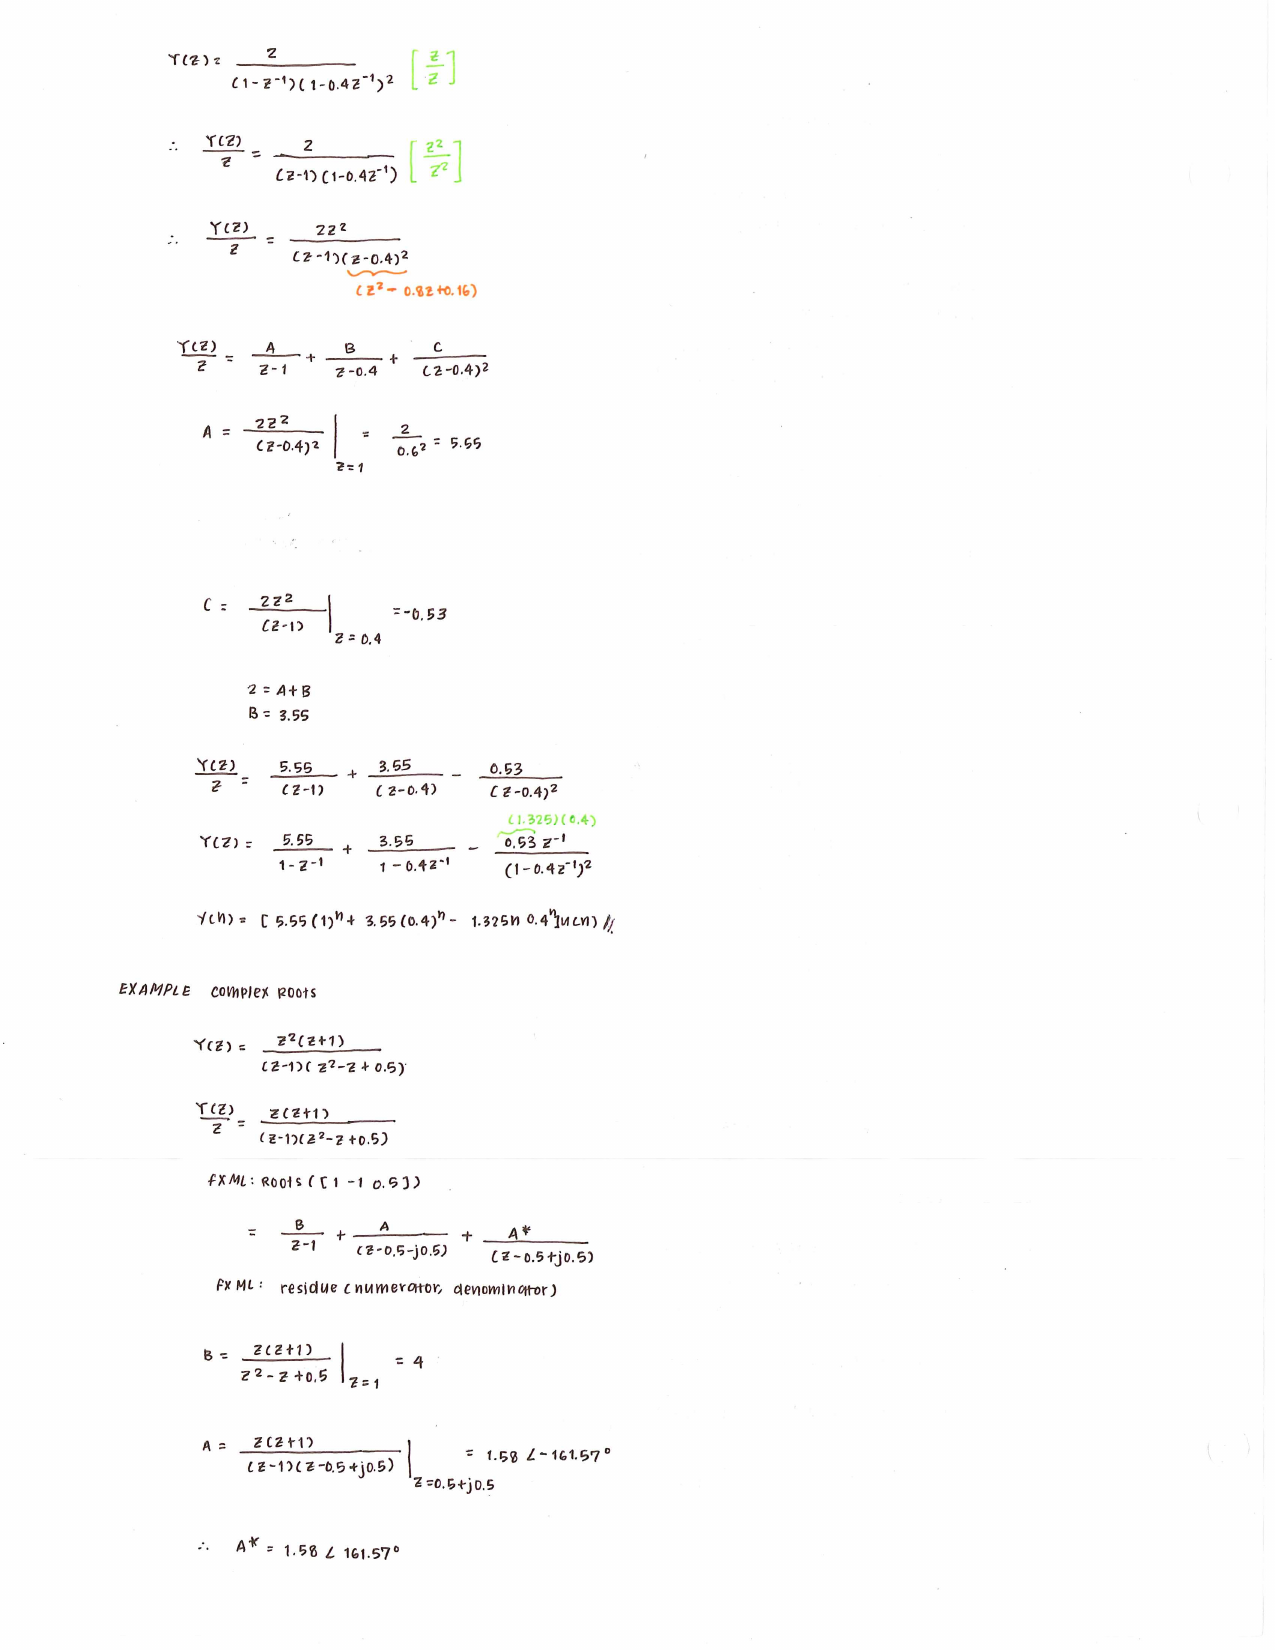 Y(z) = 2 / (1 - z⁻¹)(1 - 0.4z⁻¹)² [z/z]
∴ Y(z)/z = 2 / (z-1)(1-0.4z⁻¹) [z²/z²]
∴ Y(z)/z = 2z² / (z-1)(z-0.4)²
(z² - 0.8z+0.16)
Y(z)/z = A/(z-1) + B/(z-0.4) + C/(z-0.4)²
A = 2z²/(z-0.4)² |z=1 = 2/0.6² = 5.55
C = 2z²/(z-1) |z=0.4 = -0.53
2 = A+B
B = 3.55
Y(z)/z = 5.55/(z-1) + 3.55/(z-0.4) - 0.53/(z-0.4)²
(1.325)(0.4)
Y(z) = 5.55/1-z⁻¹ + 3.55/1-0.4z⁻¹ - 0.53 z⁻¹/(1-0.4z⁻¹)²
y(n) = [ 5.55(1)ⁿ + 3.55(0.4)ⁿ - 1.325n 0.4ⁿ]u(n) //
EXAMPLE complex Roots
Y(z) = z²(z+1) / (z-1)(z²-z+0.5)
Y(z)/z = z(z+1) / (z-1)(z²-z+0.5)
fx ML: Roots ([1 -1 0.5])
= B/z-1 + A/(z-0.5-j0.5) + A*/(z-0.5+j0.5)
fx ML: residue (numerator, denominator)
B = z(z+1)/z²-z+0.5 |z=1 = 4
A = z(z+1)/(z-1)(z-0.5+j0.5) |z=0.5+j0.5 = 1.58 ∠-161.57°
∴ A* = 1.58 ∠ 161.57°